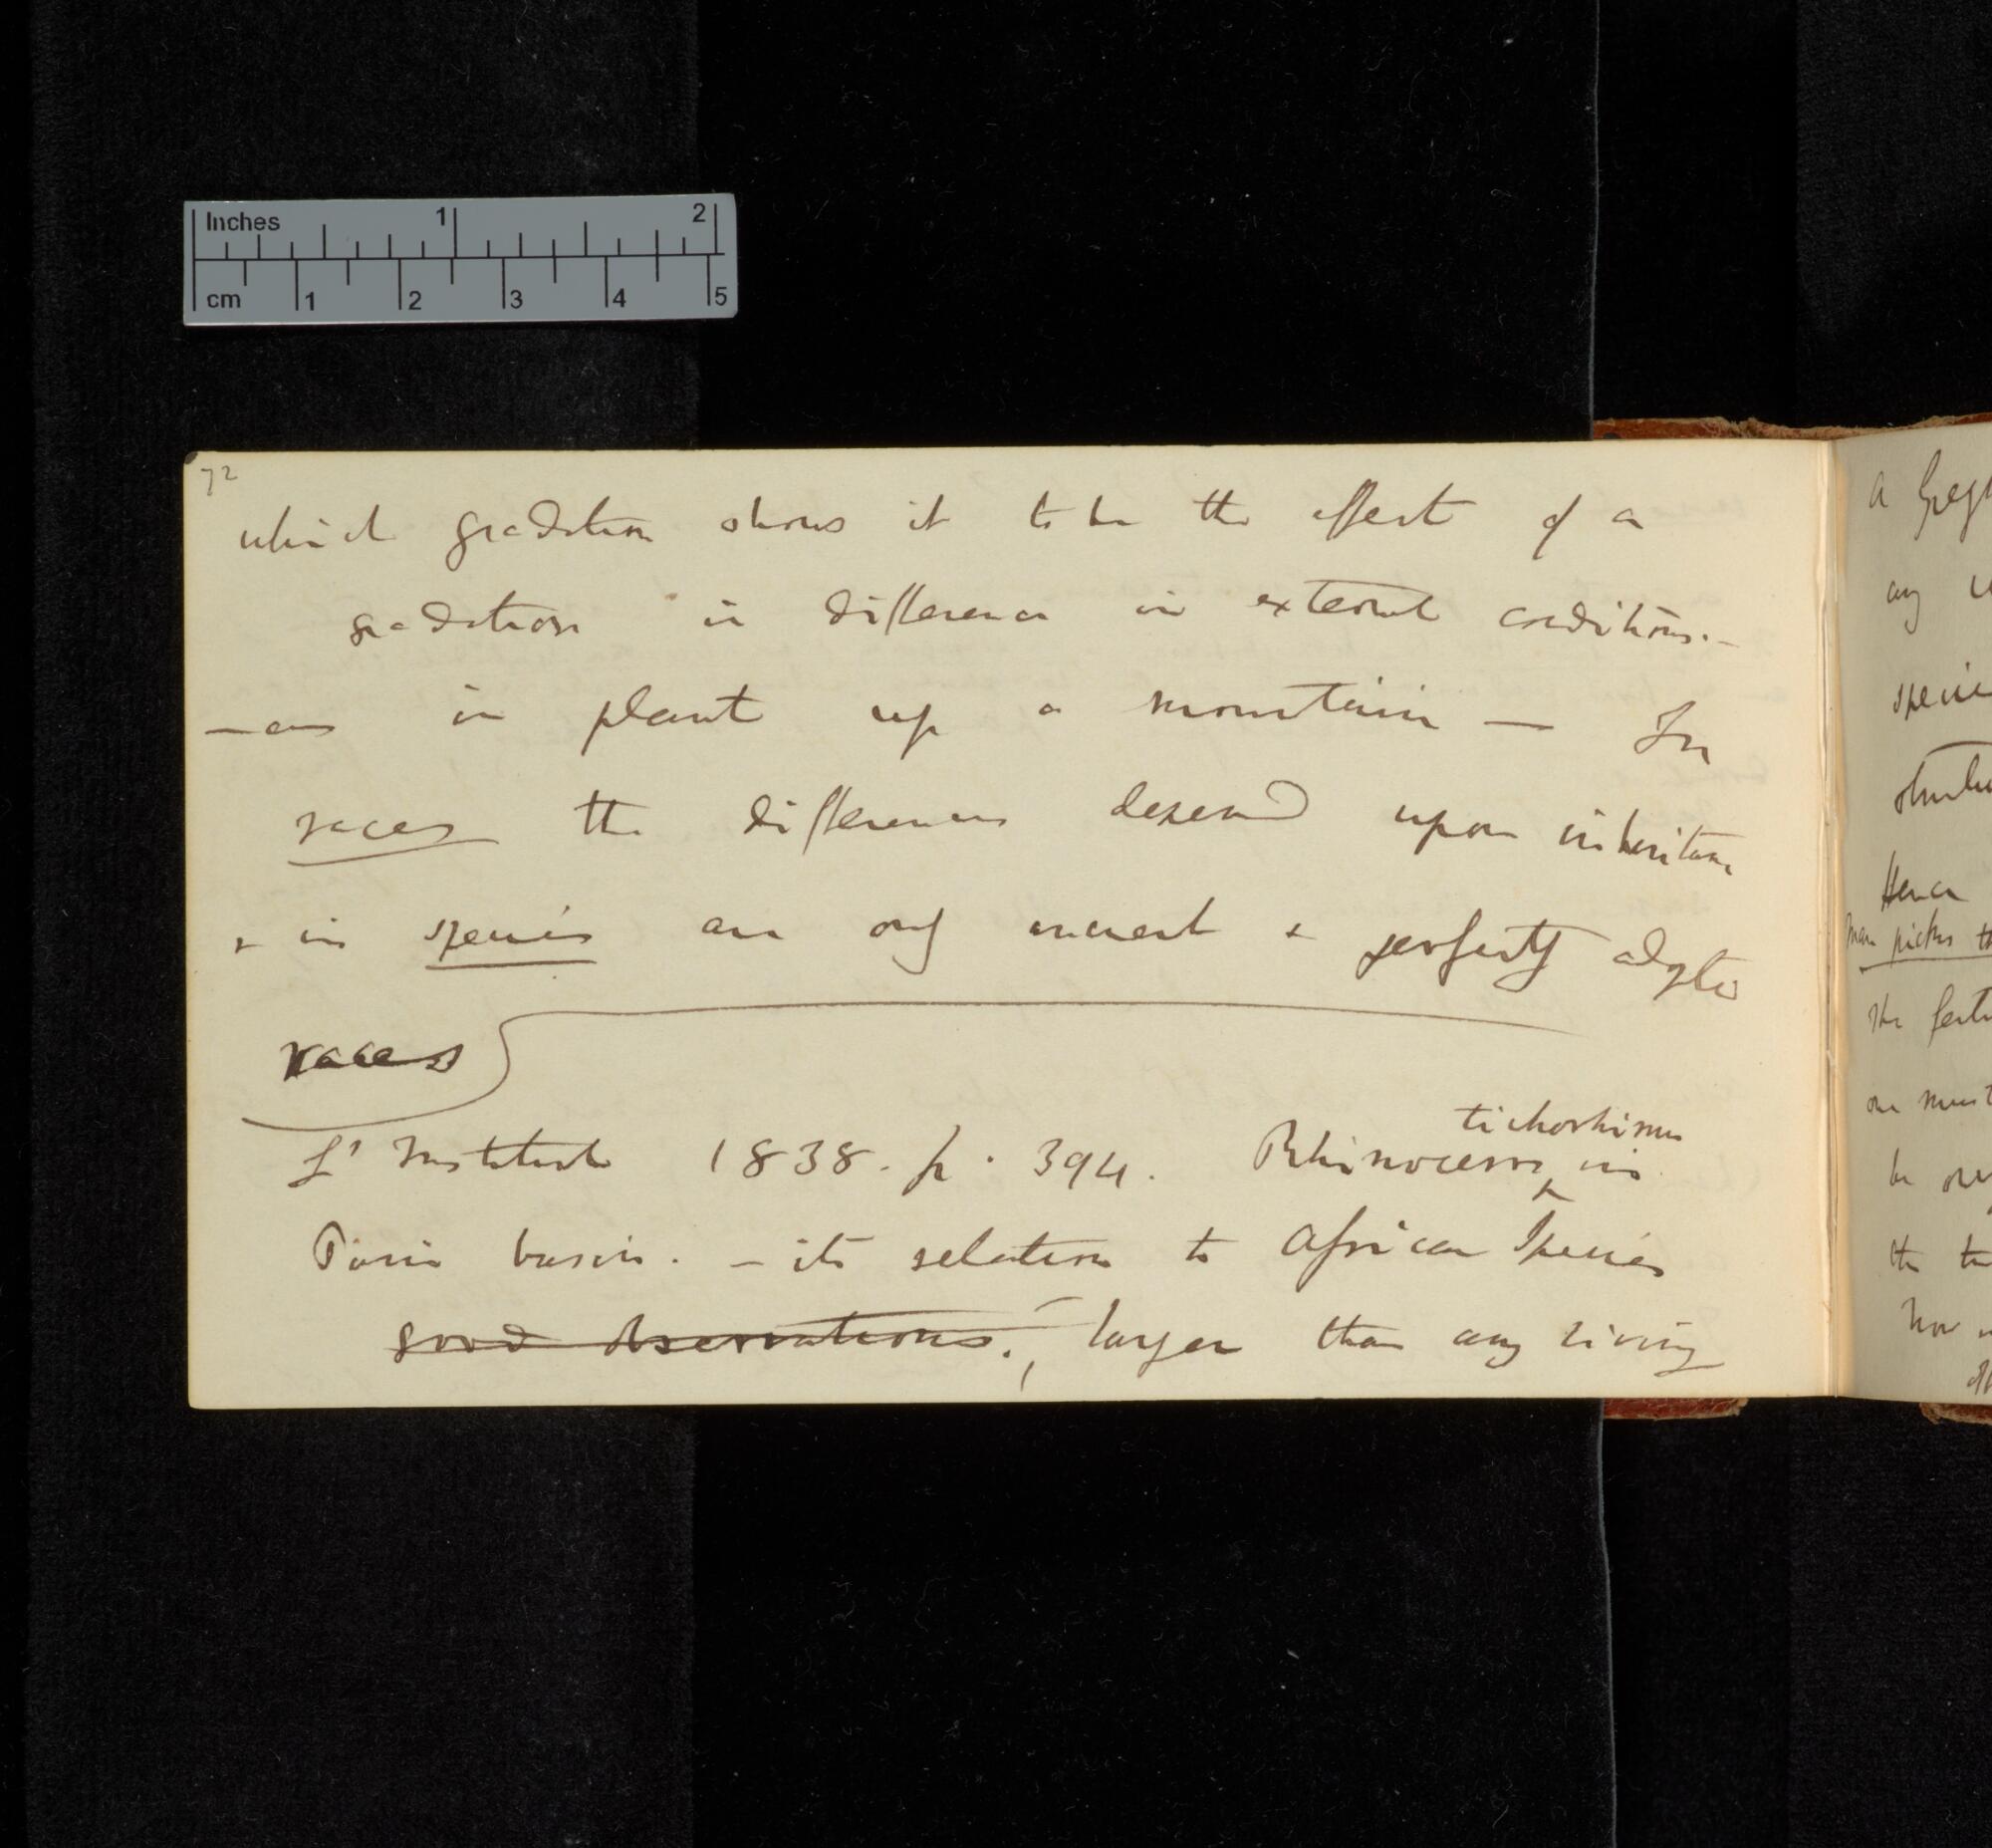 Inches 1 2
cm 1 2 3 4 5
72
which gradation shows it to be the effect of a
gradation in difference in external conditions.—
— as in plant up a mountain — In
races the differences depend upon inheritance
& in species are only ancient & perfectly adapted
races
L'Institut 1838. p. 394. Rhinoceros tichorhinus in
Paris basin. — its relation to African Species
good observations. , larger than any living
a
any
species
Hence
Man picks
the
one must
be
the
how